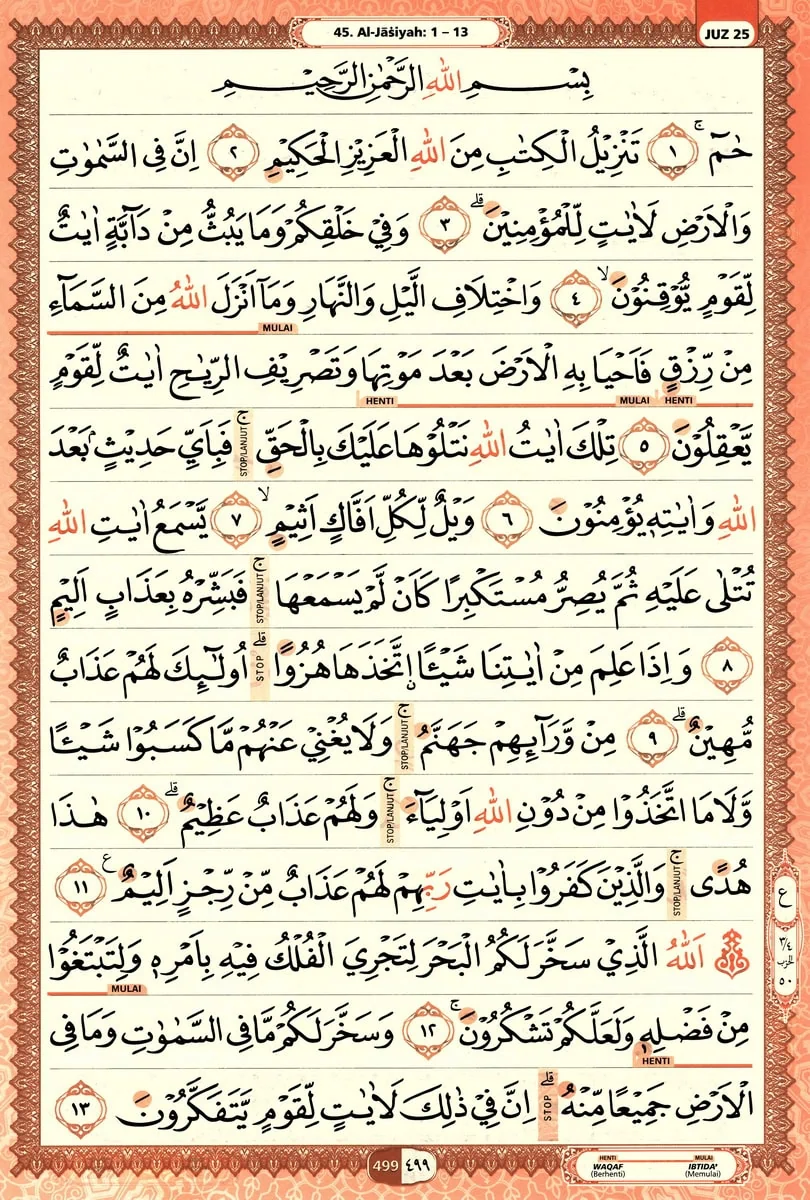 45. Al-Jāṡiyah: 1 – 13
JUZ 25
بِسْمِ اللّٰهِ الرَّحْمٰنِ الرَّحِيْمِ
حٰمۤ ۚ ١ تَنْزِيْلُ الْكِتٰبِ مِنَ اللّٰهِ الْعَزِيْزِ الْحَكِيْمِ ٢ اِنَّ فِى السَّمٰوٰتِ
وَالْاَرْضِ لَاٰيٰتٍ لِّلْمُؤْمِنِيْنَ ۗ ٣ وَفِيْ خَلْقِكُمْ وَمَا يَبُثُّ مِنْ دَاۤبَّةٍ اٰيٰتٌ
لِّقَوْمٍ يُّوْقِنُوْنَ ۙ ٤ وَاخْتِلَافِ الَّيْلِ وَالنَّهَارِ وَمَآ اَنْزَلَ اللّٰهُ مِنَ السَّمَاۤءِ
MULAI
مِنْ رِّزْقٍ فَاَحْيَا بِهِ الْاَرْضَ بَعْدَ مَوْتِهَا وَتَصْرِيْفِ الرِّيٰحِ اٰيٰتٌ لِّقَوْمٍ
HENTI MULAI HENTI
يَّعْقِلُوْنَ ٥ تِلْكَ اٰيٰتُ اللّٰهِ نَتْلُوْهَا عَلَيْكَ بِالْحَقِّ ۚ STOP/LANJUT فَبِاَيِّ حَدِيْثٍۢ بَعْدَ
اللّٰهِ وَاٰيٰتِهٖ يُؤْمِنُوْنَ ٦ وَيْلٌ لِّكُلِّ اَفَّاكٍ اَثِيْمٍ ۙ ٧ يَّسْمَعُ اٰيٰتِ اللّٰهِ
تُتْلٰى عَلَيْهِ ثُمَّ يُصِرُّ مُسْتَكْبِرًا كَاَنْ لَّمْ يَسْمَعْهَا ۚ STOP/LANJUT فَبَشِّرْهُ بِعَذَابٍ اَلِيْمٍ
٨ وَاِذَا عَلِمَ مِنْ اٰيٰتِنَا شَيْـًٔا ۨاتَّخَذَهَا هُزُوًا ۗ STOP اُولٰۤىِٕكَ لَهُمْ عَذَابٌ
مُّهِيْنٌ ۗ ٩ مِنْ وَّرَاۤىِٕهِمْ جَهَنَّمُ ۚ STOP/LANJUT وَلَا يُغْنِيْ عَنْهُمْ مَّا كَسَبُوْا شَيْـًٔا
وَّلَا مَا اتَّخَذُوْا مِنْ دُوْنِ اللّٰهِ اَوْلِيَاۤءَ ۚ STOP/LANJUT وَلَهُمْ عَذَابٌ عَظِيْمٌ ۗ ١٠ هٰذَا
هُدًى ۚ STOP/LANJUT وَالَّذِيْنَ كَفَرُوْا بِاٰيٰتِ رَبِّهِمْ لَهُمْ عَذَابٌ مِّنْ رِّجْزٍ اَلِيْمٌ ࣖ ١١
اَللّٰهُ الَّذِيْ سَخَّرَ لَكُمُ الْبَحْرَ لِتَجْرِيَ الْفُلْكُ فِيْهِ بِاَمْرِهٖ وَلِتَبْتَغُوْا
MULAI
مِنْ فَضْلِهٖ وَلَعَلَّكُمْ تَشْكُرُوْنَ ۚ ١٢ وَسَخَّرَ لَكُمْ مَّا فِى السَّمٰوٰتِ وَمَا فِى
HENTI
الْاَرْضِ جَمِيْعًا مِّنْهُ ۗ STOP اِنَّ فِيْ ذٰلِكَ لَاٰيٰتٍ لِّقَوْمٍ يَّتَفَكَّرُوْنَ ١٣
ع
٣/٤
الحزب
٥٠
499 ٤٩٩
HENTI MULAI
WAQAF IBTIDA'
(Berhenti) (Memulai)